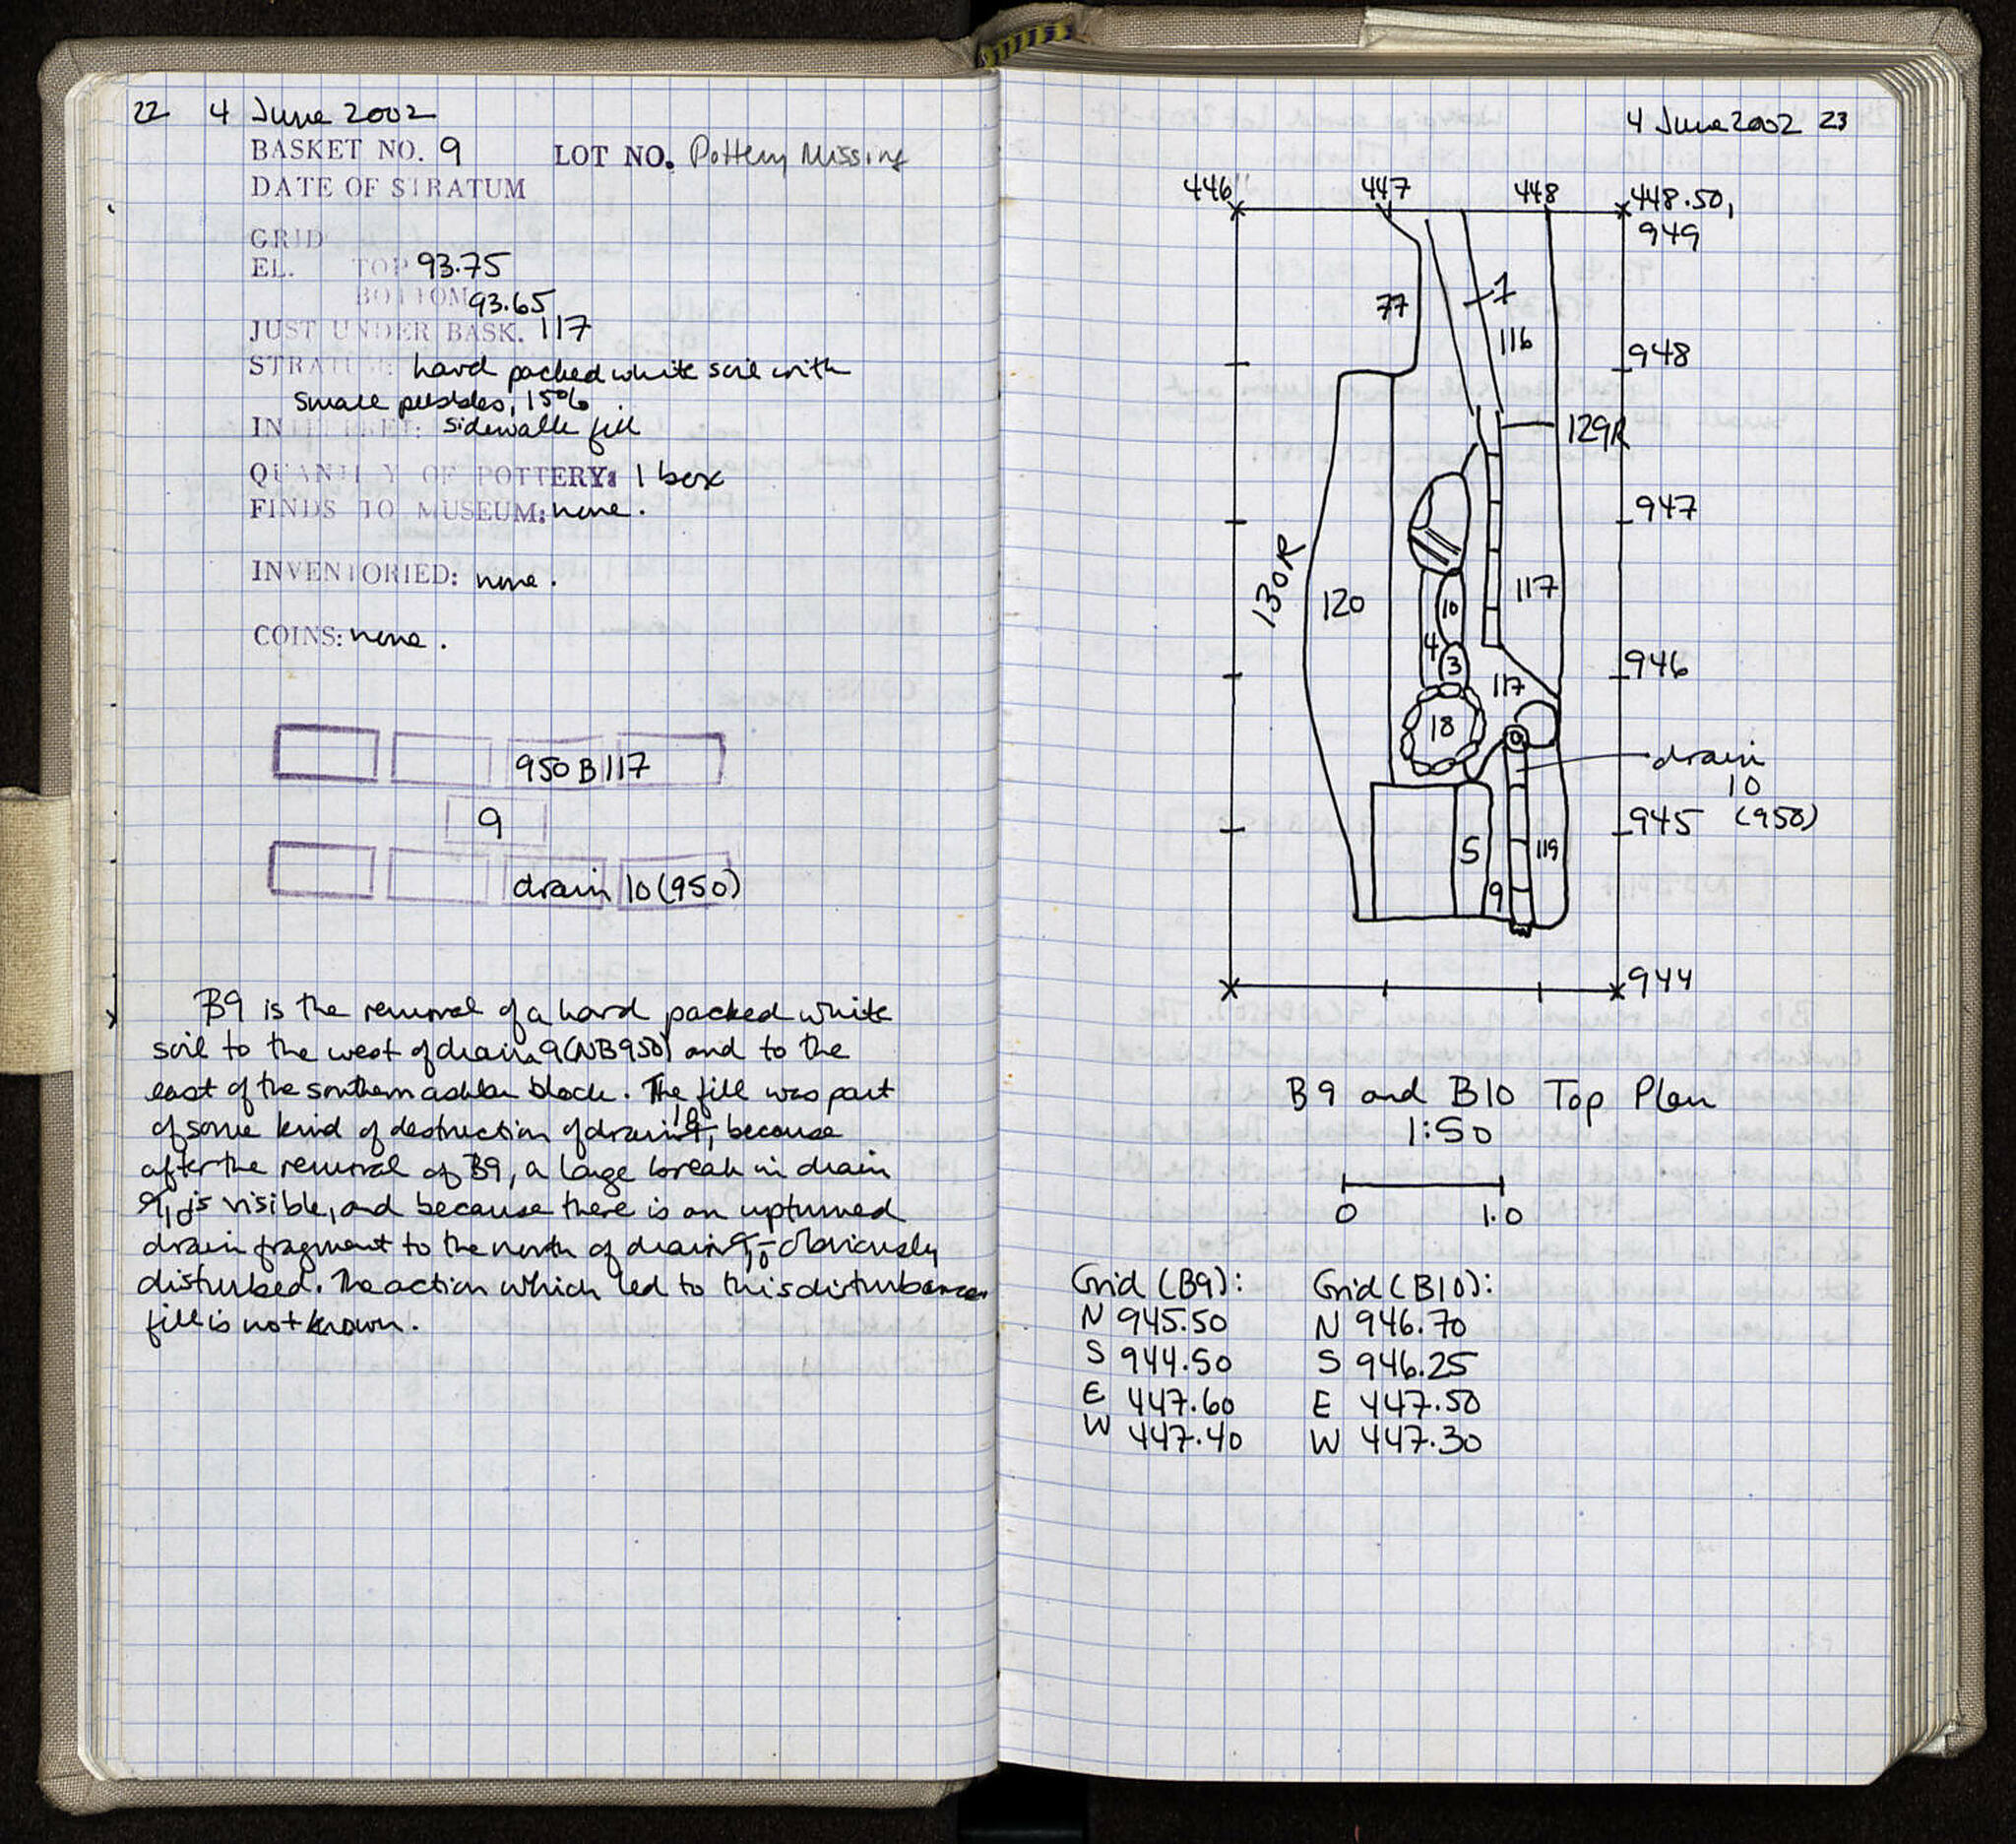 22 4 June 2002
BASKET NO. 9 LOT NO. Pottery Missing
DATE OF STRATUM
GRID
EL. TOP 93.75
BOTTOM 93.65
JUST UNDER BASK. 117
STRATUM: hard packed white soil with
small pebbles, 15%
INTERPRET: sidewalk fill
QUANTITY OF POTTERY: 1 box
FINDS TO MUSEUM: none.
INVENTORIED: none.
COINS: none.
950 B 117
9
drain 10 (950)
B9 is the removal of a hard packed white
soil to the west of drain 9 (NB950) and to the
east of the southern ashlar block. The fill was part
of some kind of destruction of drain 9 10, because
after the removal of B9, a large break in drain
9 10 is visible, and because there is an upturned
drain fragment to the north of drain 9 10 - obviously
disturbed. The action which led to this disturbance
fill is not known.
4 June 2002 23
446 447 448 448.50,
949
77
1
116
948
129R
947
130R
120
10
117
4
3
946
117
18
drain
10
(950)
945
5
119
9
944
B9 and B10 Top Plan
1:50
0 1.0
Grid (B9): Grid (B10):
N 945.50 N 946.70
S 944.50 S 946.25
E 447.60 E 447.50
W 447.40 W 447.30